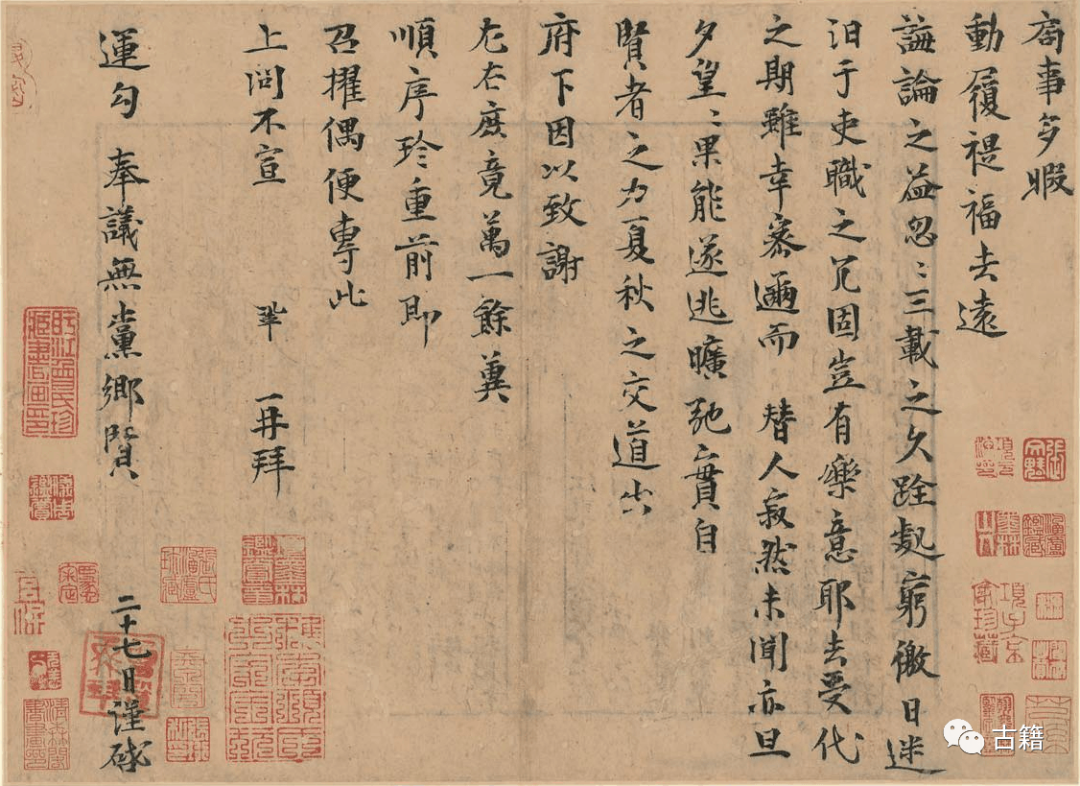 局事多暇
動履禔福去遠
誨論之益忽〻三載之久跧處窮徼日迷
汩于吏職之冗固豈有樂意耶去受代
之期雖幸密邇而　替人寂然未聞亦旦
夕望〻果能遂逃曠弛實自
賢者之力夏秋之交道出
府下因以致謝
左右庶竟萬一餘冀
順序珍重前即
召擢偶便專此
上問不宣　鞏　再拜
運勾　奉議無黨鄉賢　二十七日謹啟
古籍